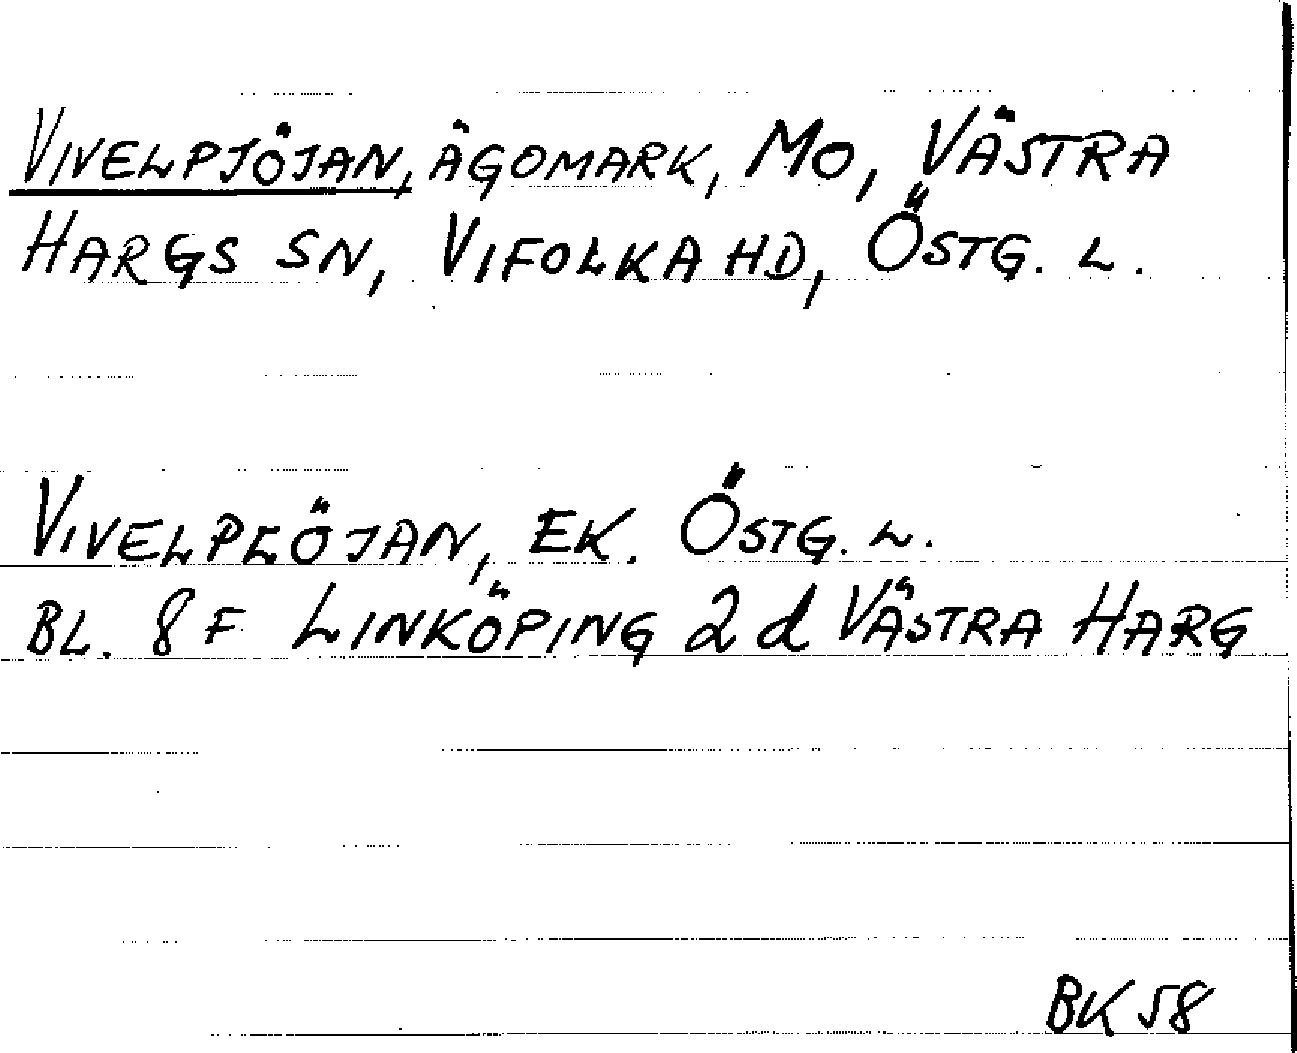 VIVELPJÖJAN, ÄGOMARK, MO, VÄSTRA
HARGS SN, VIFOLKA HD, ÖSTG. L.
VIVELPLÖJAN, EK. ÖSTG. L.
BL. 8 F LINKÖPING 2 d VÄSTRA HARG
BK 58